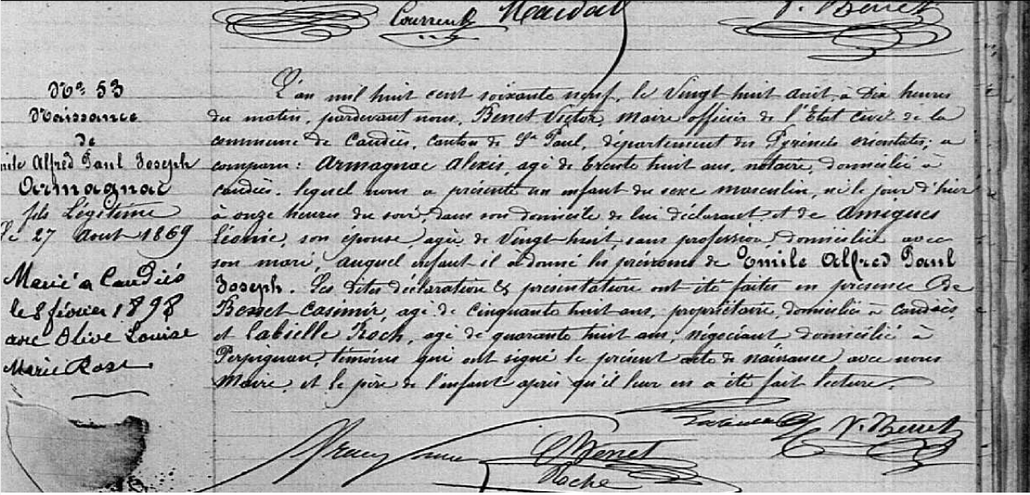 Courrent
V. Benet
Nº 53
Naissance
de
Alfred Paul Joseph
Armagnac
fils Légitime
le 27 Aout 1869
Marié à Caudiès
le 8 février 1898
avec Olive Louise
Marie Rose
L'an mil huit cent soixante neuf, le Vingt huit Aout, à Dix heures
du matin, pardevant nous, Benet Victor, Maire officier de l'Etat Civil de la
commune de Caudiès, canton de St Paul, département des Pyrénées orientales, a
comparu : Armagnac Alexis, agé de trente huit ans, notaire, domicilié à
Caudiès, lequel nous a présenté un enfant du sexe masculin, né le jour d'hier
à onze heures du soir, dans son domicile de lui déclarant et de Amigues
Léonie, son épouse, agée de Vingt huit, sans profession, domiciliée avec
son mari, auquel enfant il a donné les prénoms de Emile Alfred Paul
Joseph. Les dites déclaration & présentation ont été faites en présence de
Benet Casimir, agé de Cinquante huit ans, propriétaire, domicilié à Caudiès,
et Labielle Roch, agé de quarante huit ans, négociant domicilié à
Perpignan, témoins qui ont signé le présent acte de naissance avec nous
Maire, et le père de l'enfant après qu'il leur en a été fait lecture.
V. Benet
C. Benet
Roche